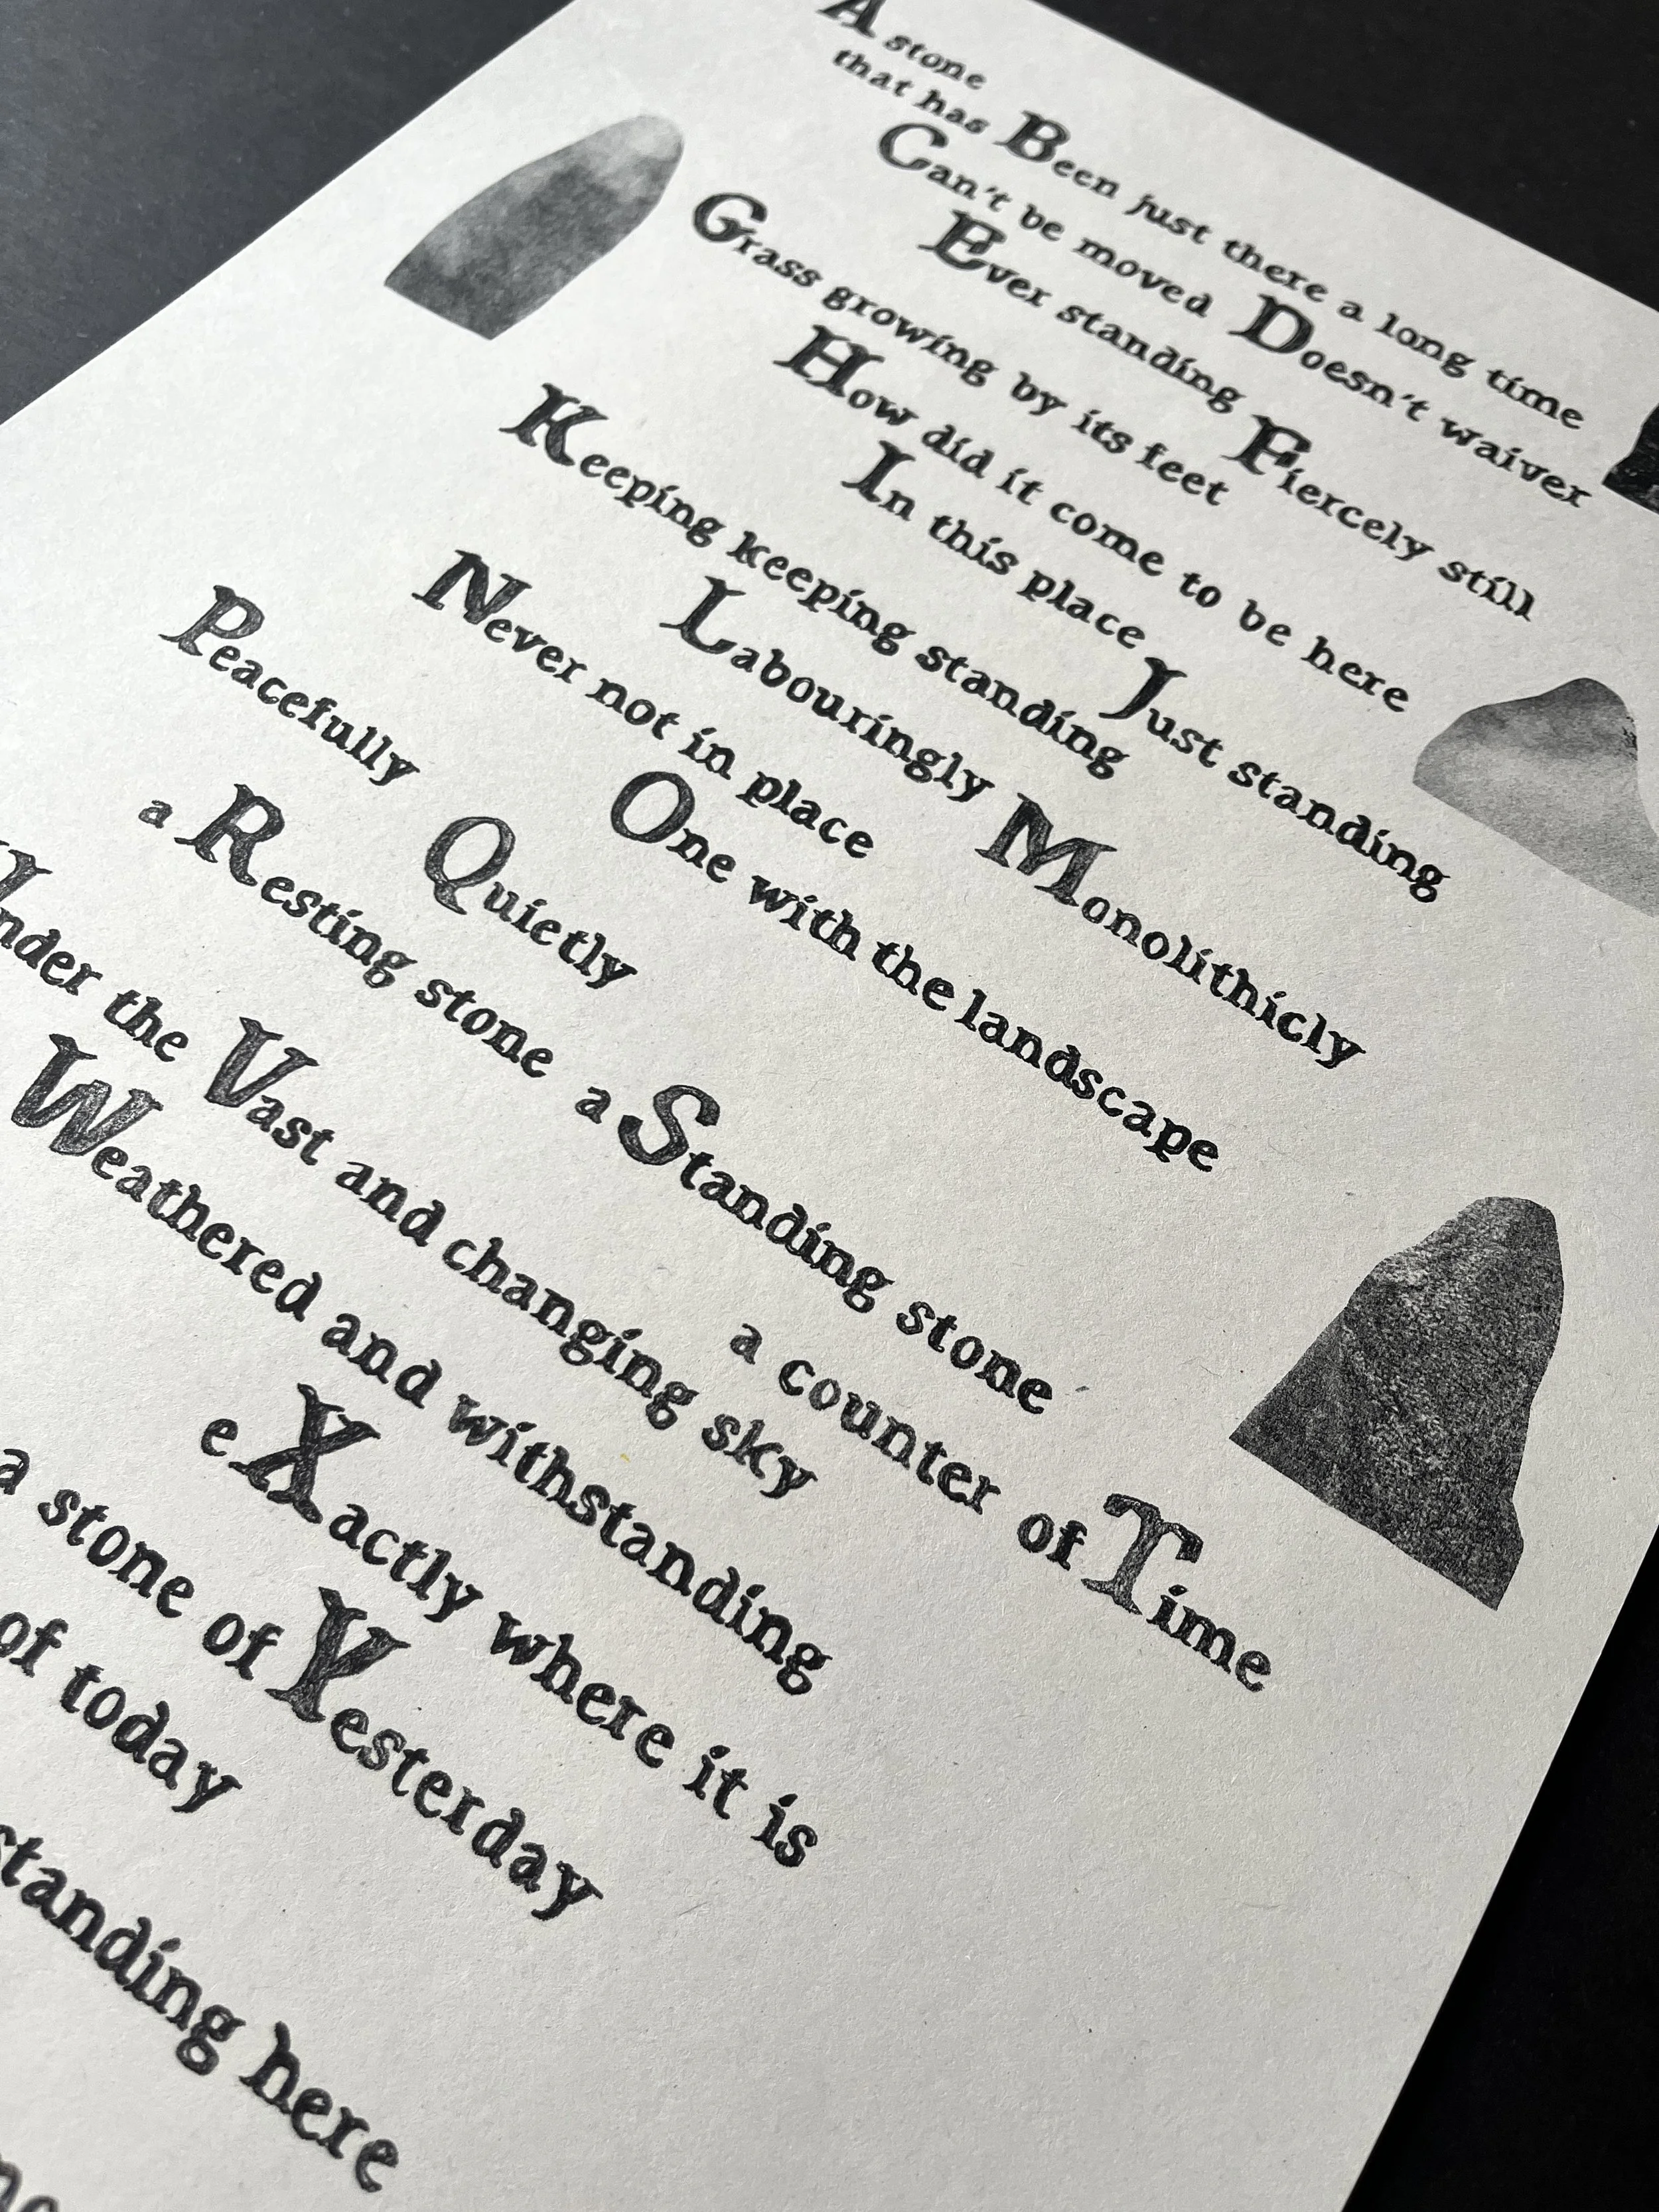 A stone
that has Been just there a long time
Can't be moved Doesn't waiver
Ever standing Fiercely still
Grass growing by its feet
How did it come to be here
In this place Just standing
Keeping keeping standing
Labouringly Monolithicly
Never not in place
One with the landscape
Peacefully Quietly
a Resting stone a Standing stone
a counter of Time
Under the Vast and changing sky
Weathered and withstanding
eXactly where it is
a stone of Yesterday
of today
standing here